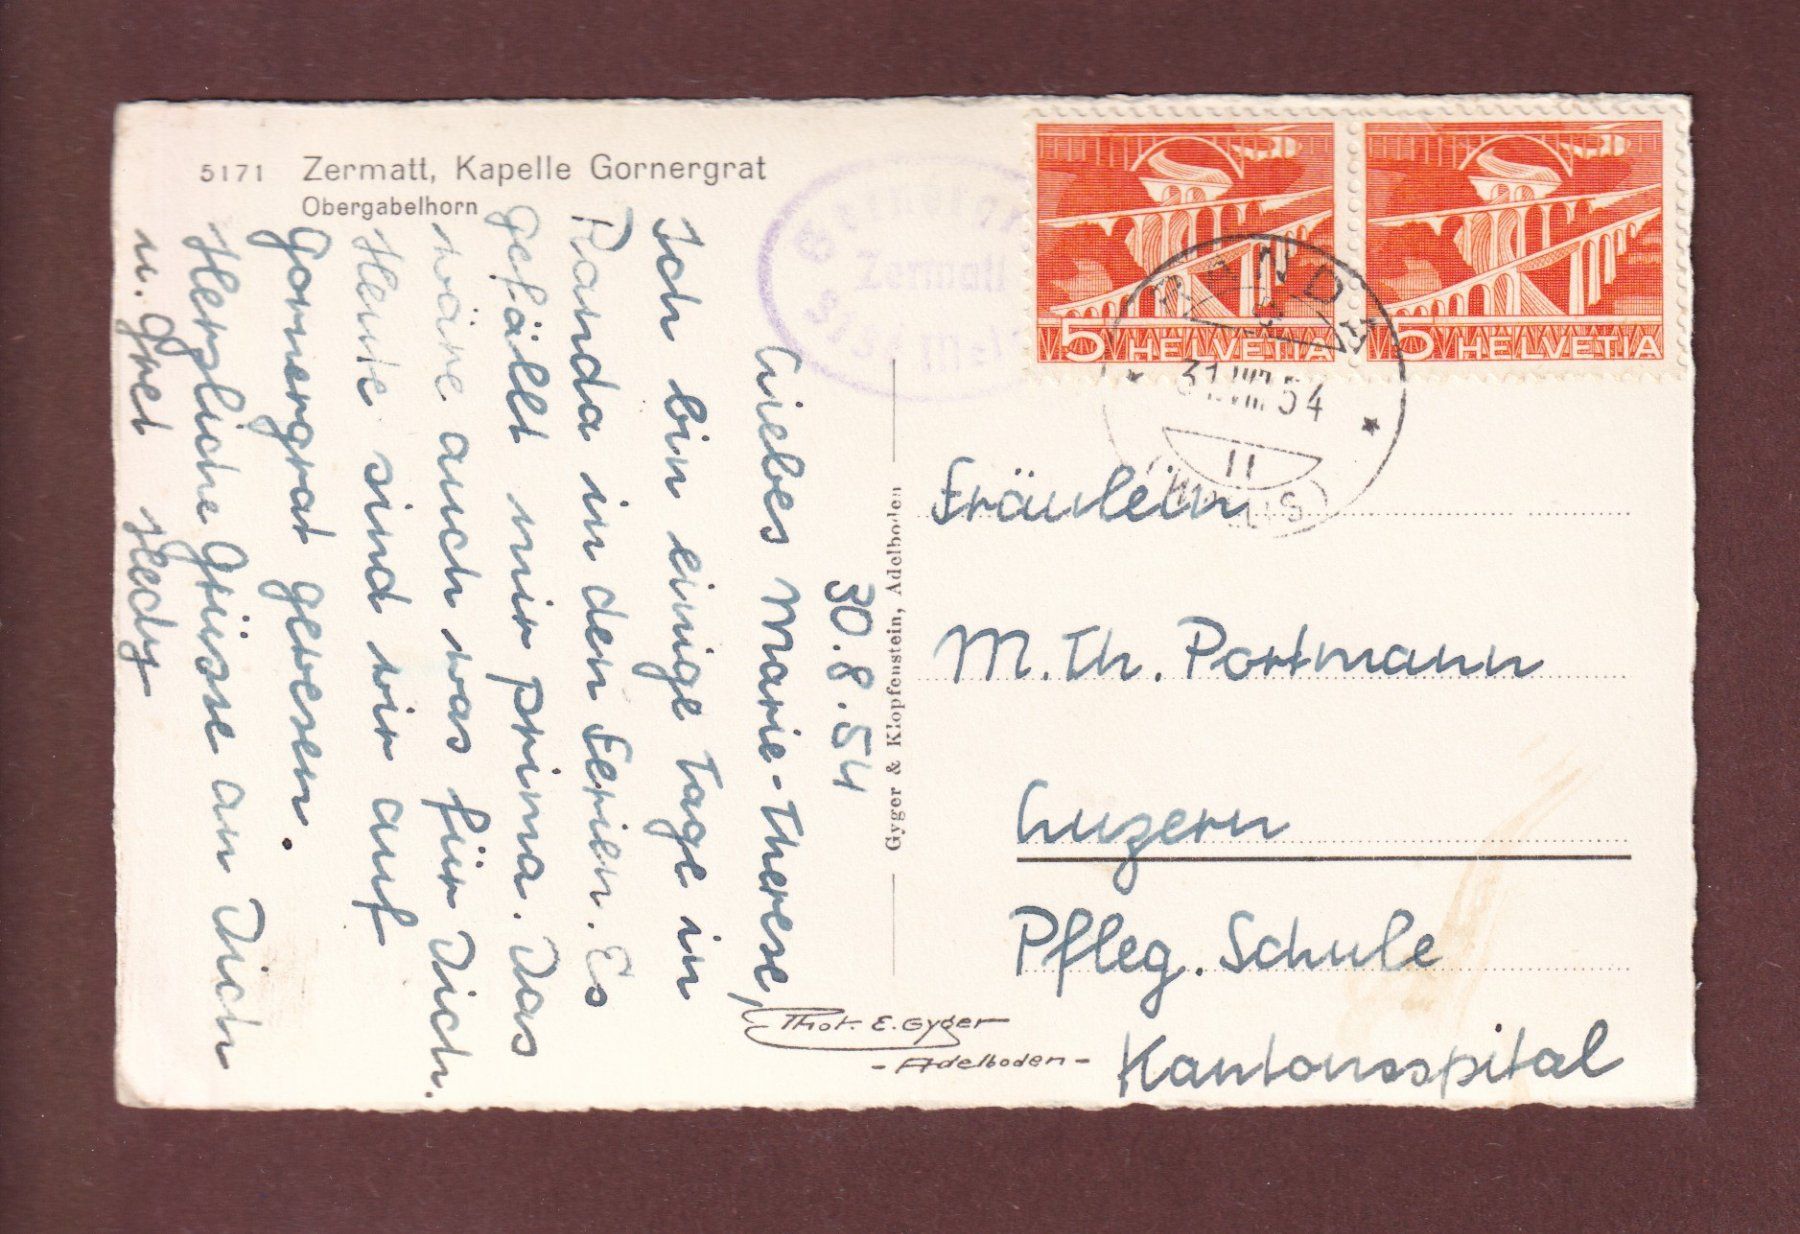 5171 Zermatt, Kapelle Gornergrat
Obergabelhorn
30.8.54
Liebes Marie-Therese,
Ich bin einige Tage in
Randa in den Ferien. Es
gefällt mir prima. Das
wäre auch was für Dich.
Heute sind wir auf
Gornergrat gewesen.
Herzliche Grüsse an Dich
u. Gret Hedy
Gyger & Klopfenstein, Adelboden
Phot. E. Gyger
- Adelboden -
Zermatt
5 HELVETIA
5 HELVETIA
RANDA
31.VIII.54
11
Fräulein
M. Th. Portmann
Luzern
Pfleg. Schule
Kantonsspital